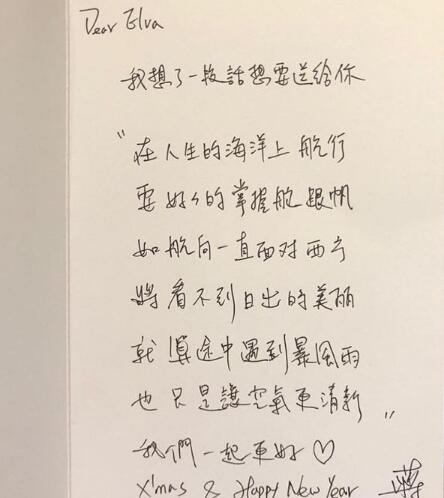 Dear Elva
我想了一段話想要送給你
"在人生的海洋上航行
要好々的掌握舵跟帆
如航向一直面对西方
將看不到日出的美丽
就算途中遇到暴風雨
也只是讓空氣更清新"
我們一起更好♡
X'mas & Happy New Year 蔣